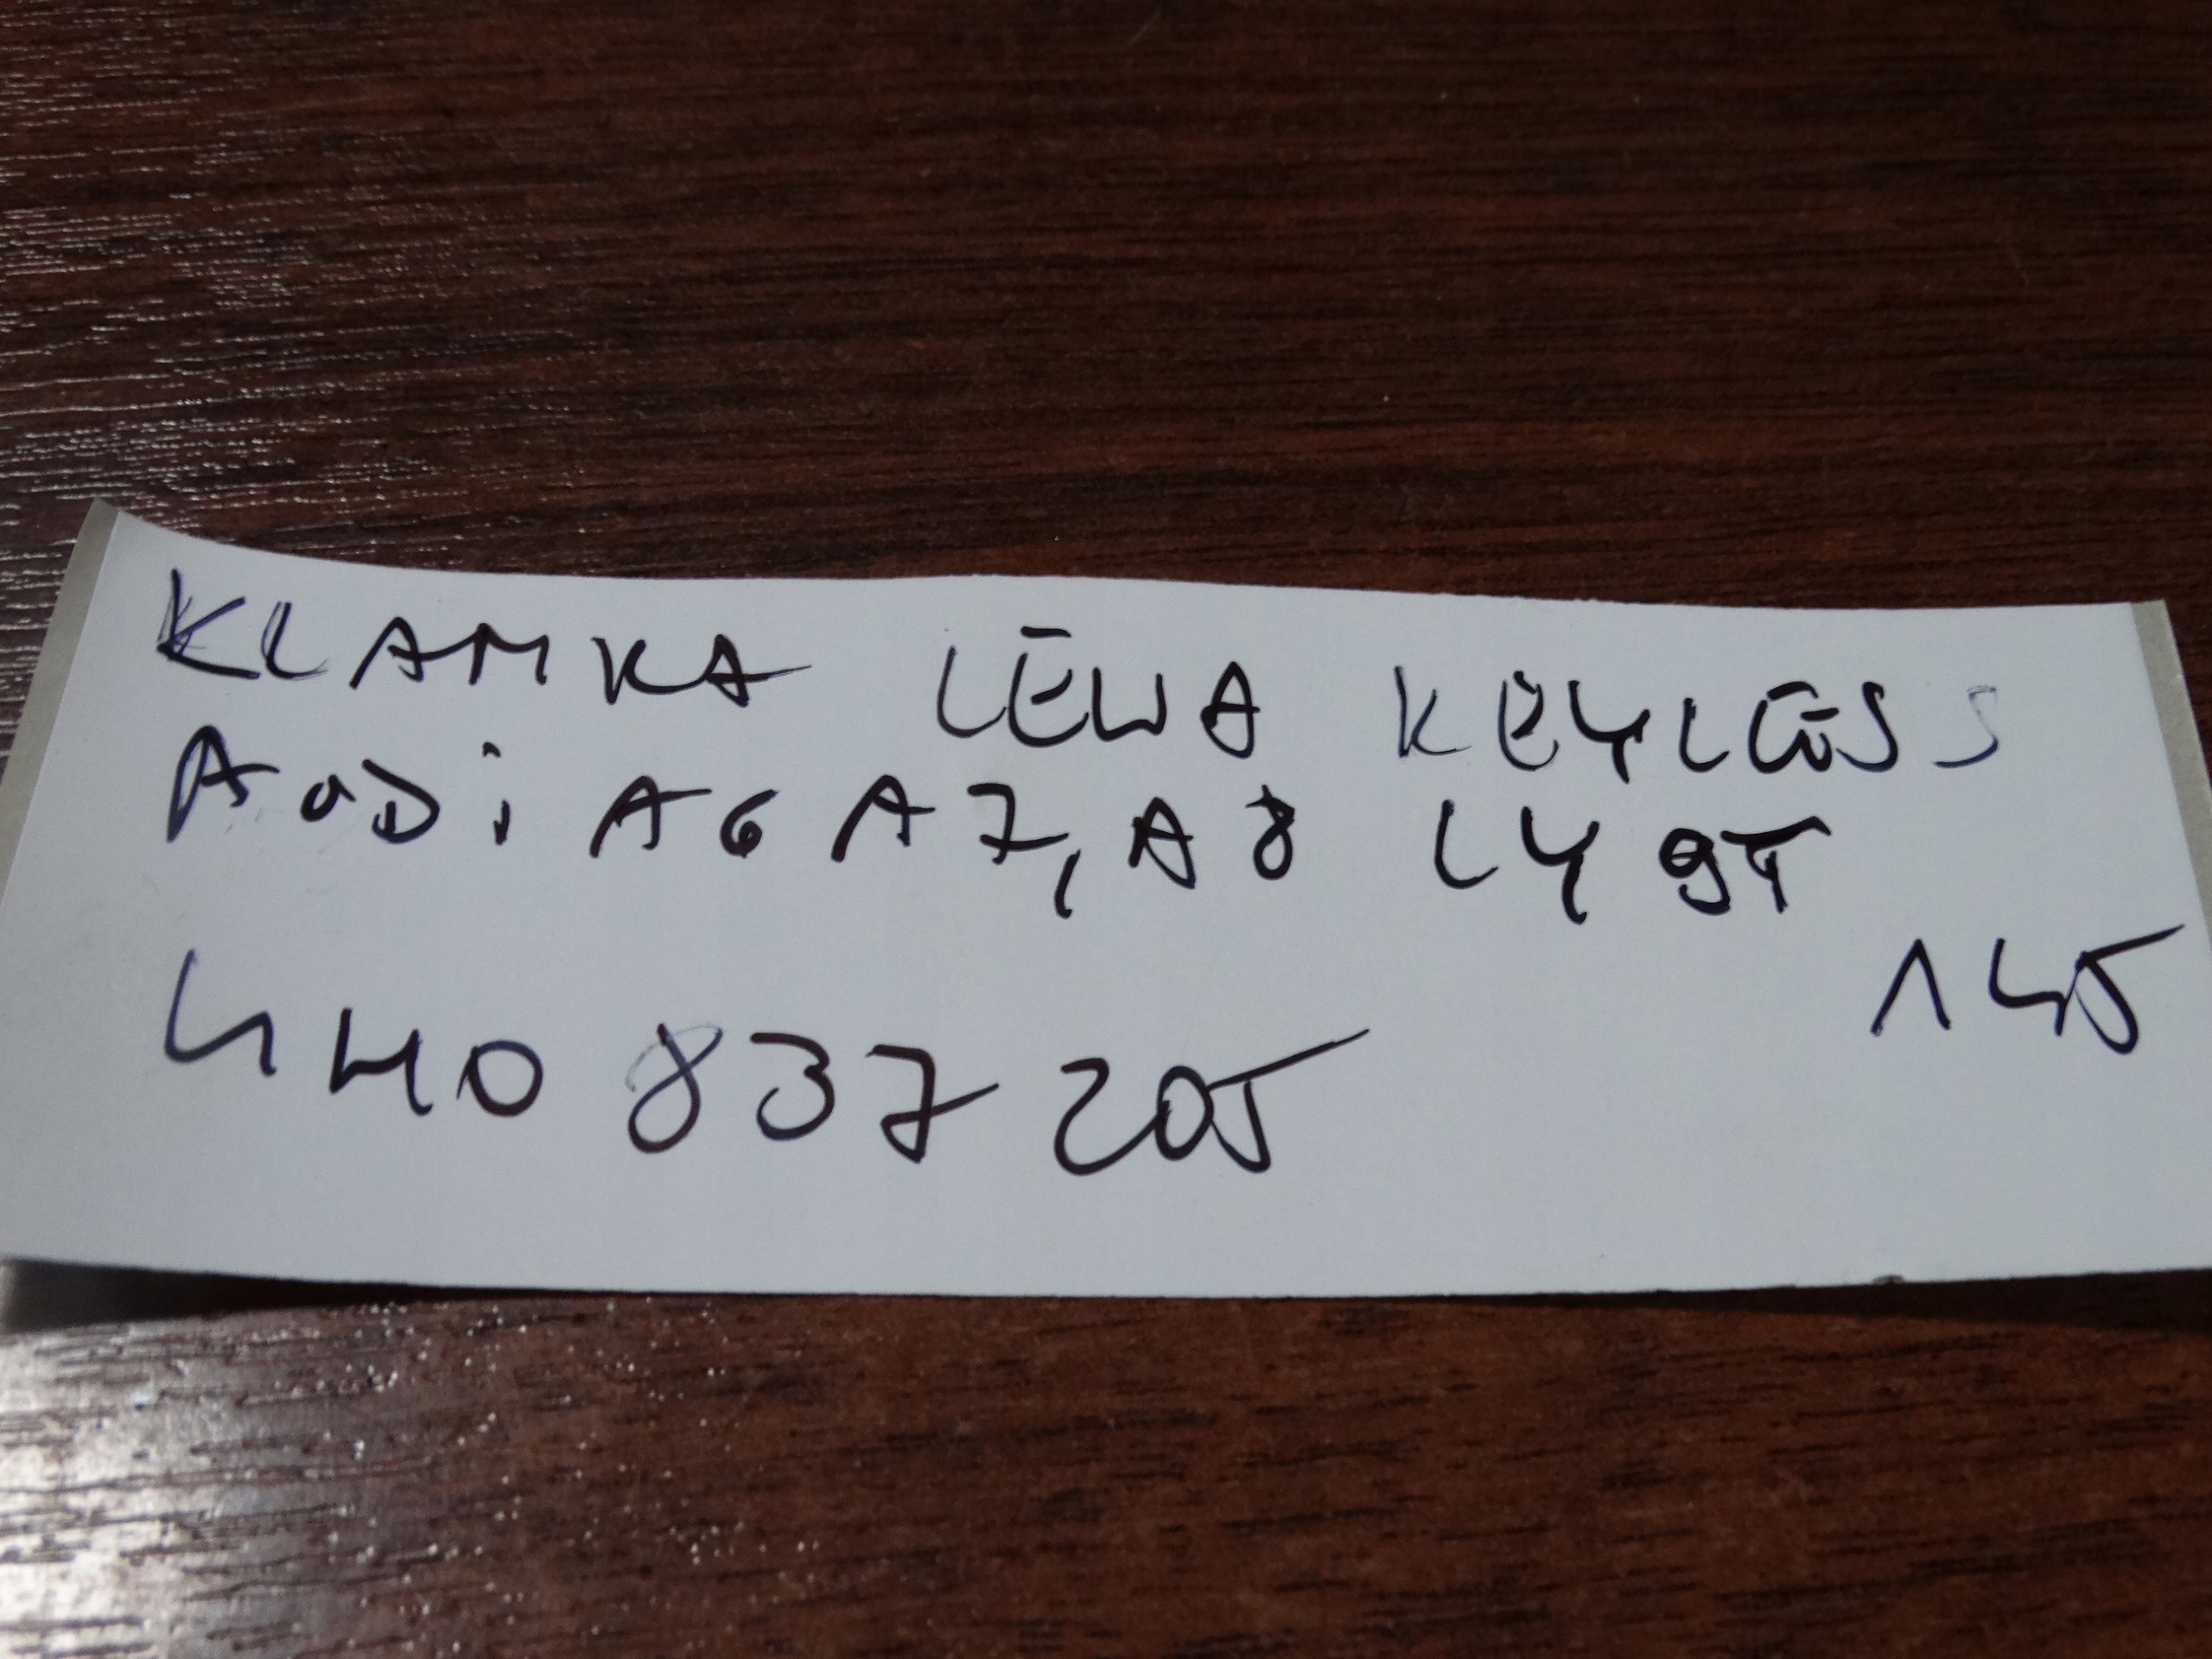 KLAMKA LEWA KEYLESS
AUDi A6 A7, A8 LY9T
145
4H0 837 205